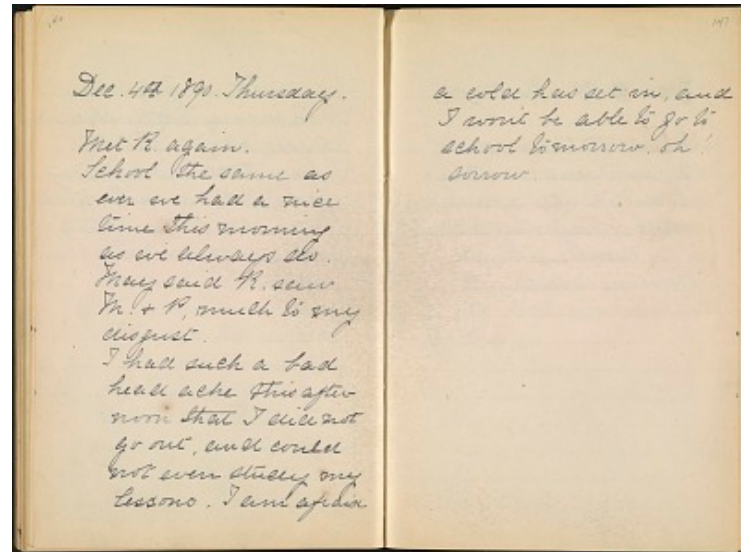 146
Dec. 4th 1890. Thursday.
Met R. again.
School the same as
ever we had a nice
time this morning
as we always do.
May said R. saw
M. & P, much to my
disgust.
I had such a bad
head ache this after
noon that I did not
go out, and could
not even study my
lessons. I am afraid
147
a cold has set in, and
I won't be able to go to
school tomorrow. oh!
sorrow.